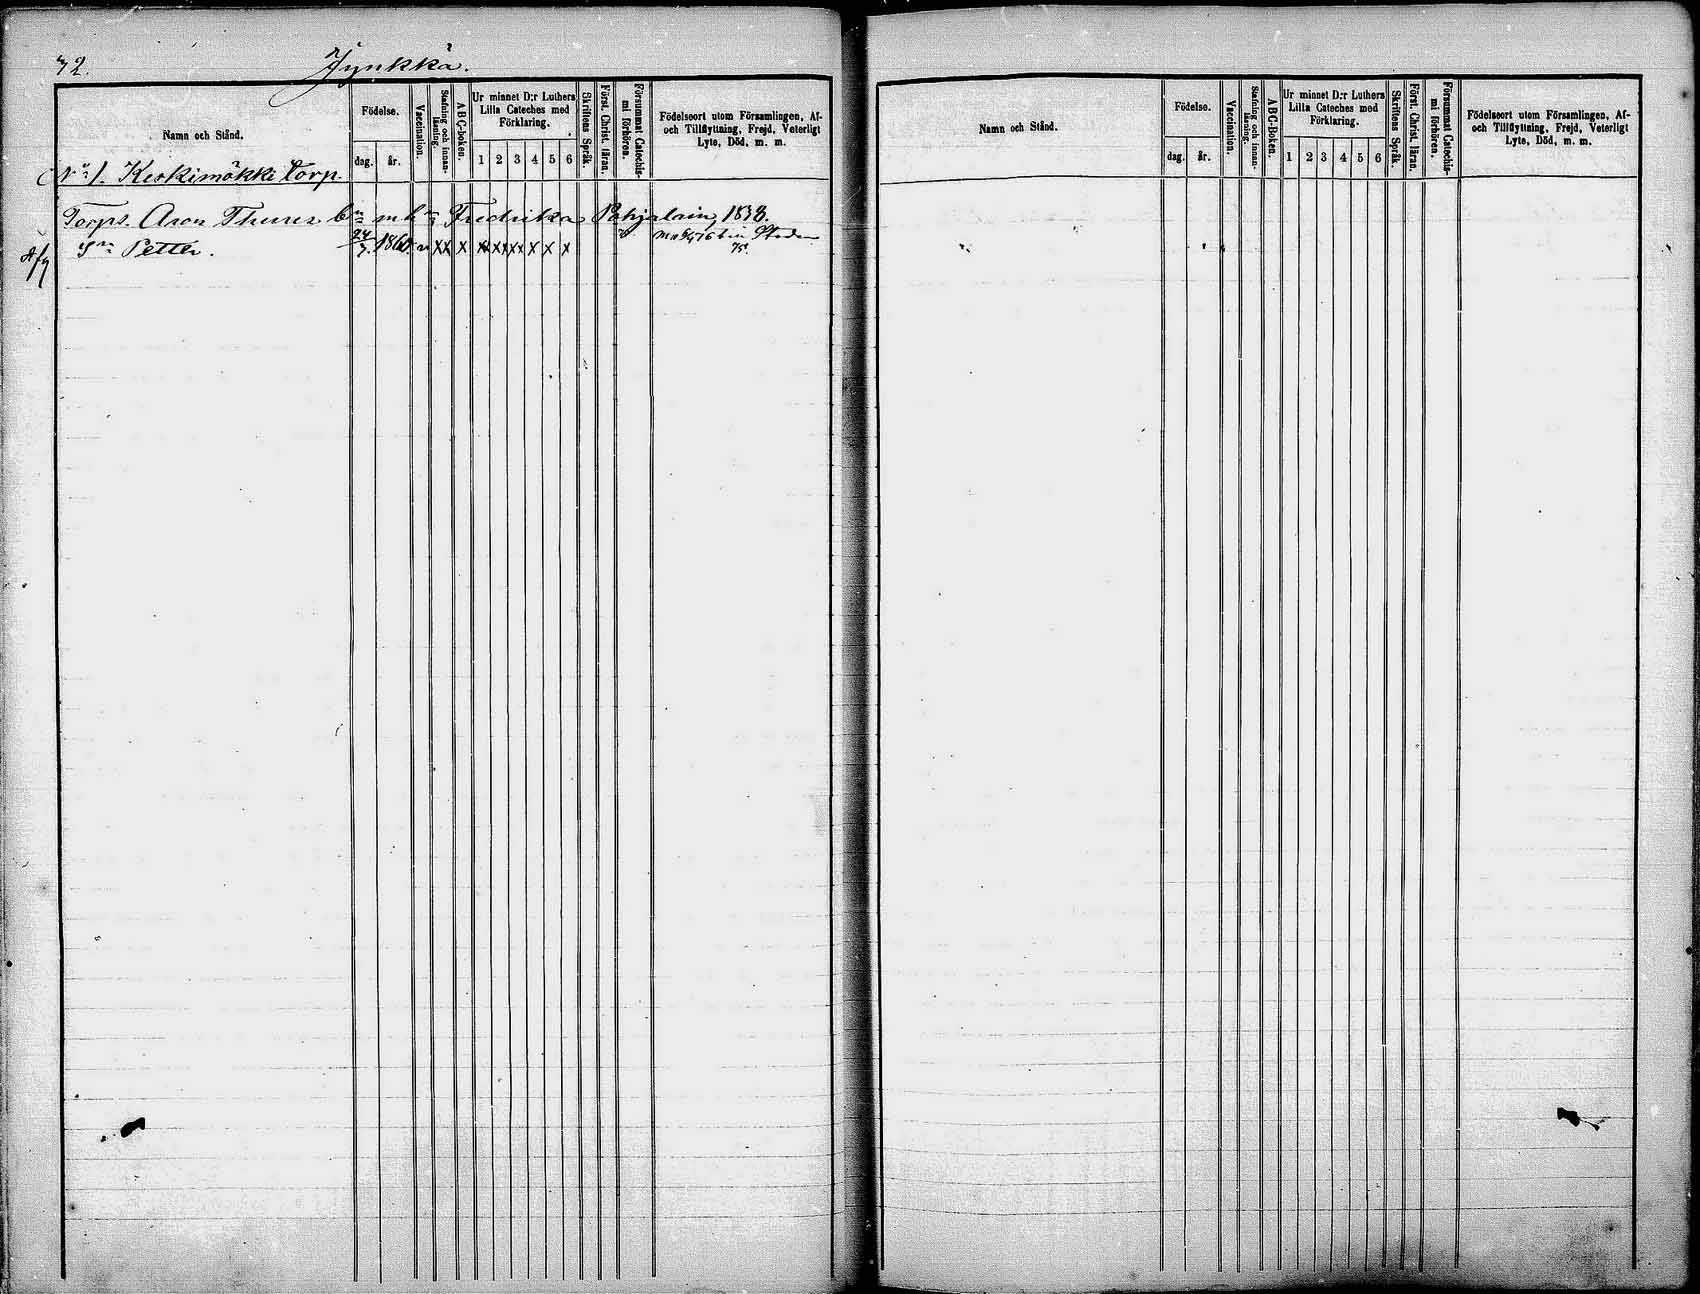 72. Jynkkä.
Namn och Stånd.
Födelse.
dag. år.
Vaccination.
Stafning och innanläsning.
ABC-boken.
Ur minnet D:r Luthers
Lilla Cateches med
Förklaring.
1 2 3 4 5 6
Skriftens Språk.
Först. Christ. läran.
Försummat Catechismi förhören.
Födelseort utom Församlingen, Af-
och Tillflyttning, Frejd, Veterligt
Lyte, Död, m. m.
N:o 1. Keskimökki torp.
Torps. Aron Thures m h Fredrika Pohjalain, 1838.
Sn Petter. 24/7 1860. v x x x x x x x x x
Namn och Stånd.
Födelse.
dag. år.
Vaccination.
Stafning och innanläsning.
ABC-Boken.
Ur minnet D:r Luthers
Lilla Cateches med
Förklaring.
1 2 3 4 5 6
Skriftens Språk.
Först. Christ. läran.
Försummat Catechismi förhören.
Födelseort utom Församlingen, Af-
och Tillflyttning, Frejd, Veterligt
Lyte, Död, m. m.